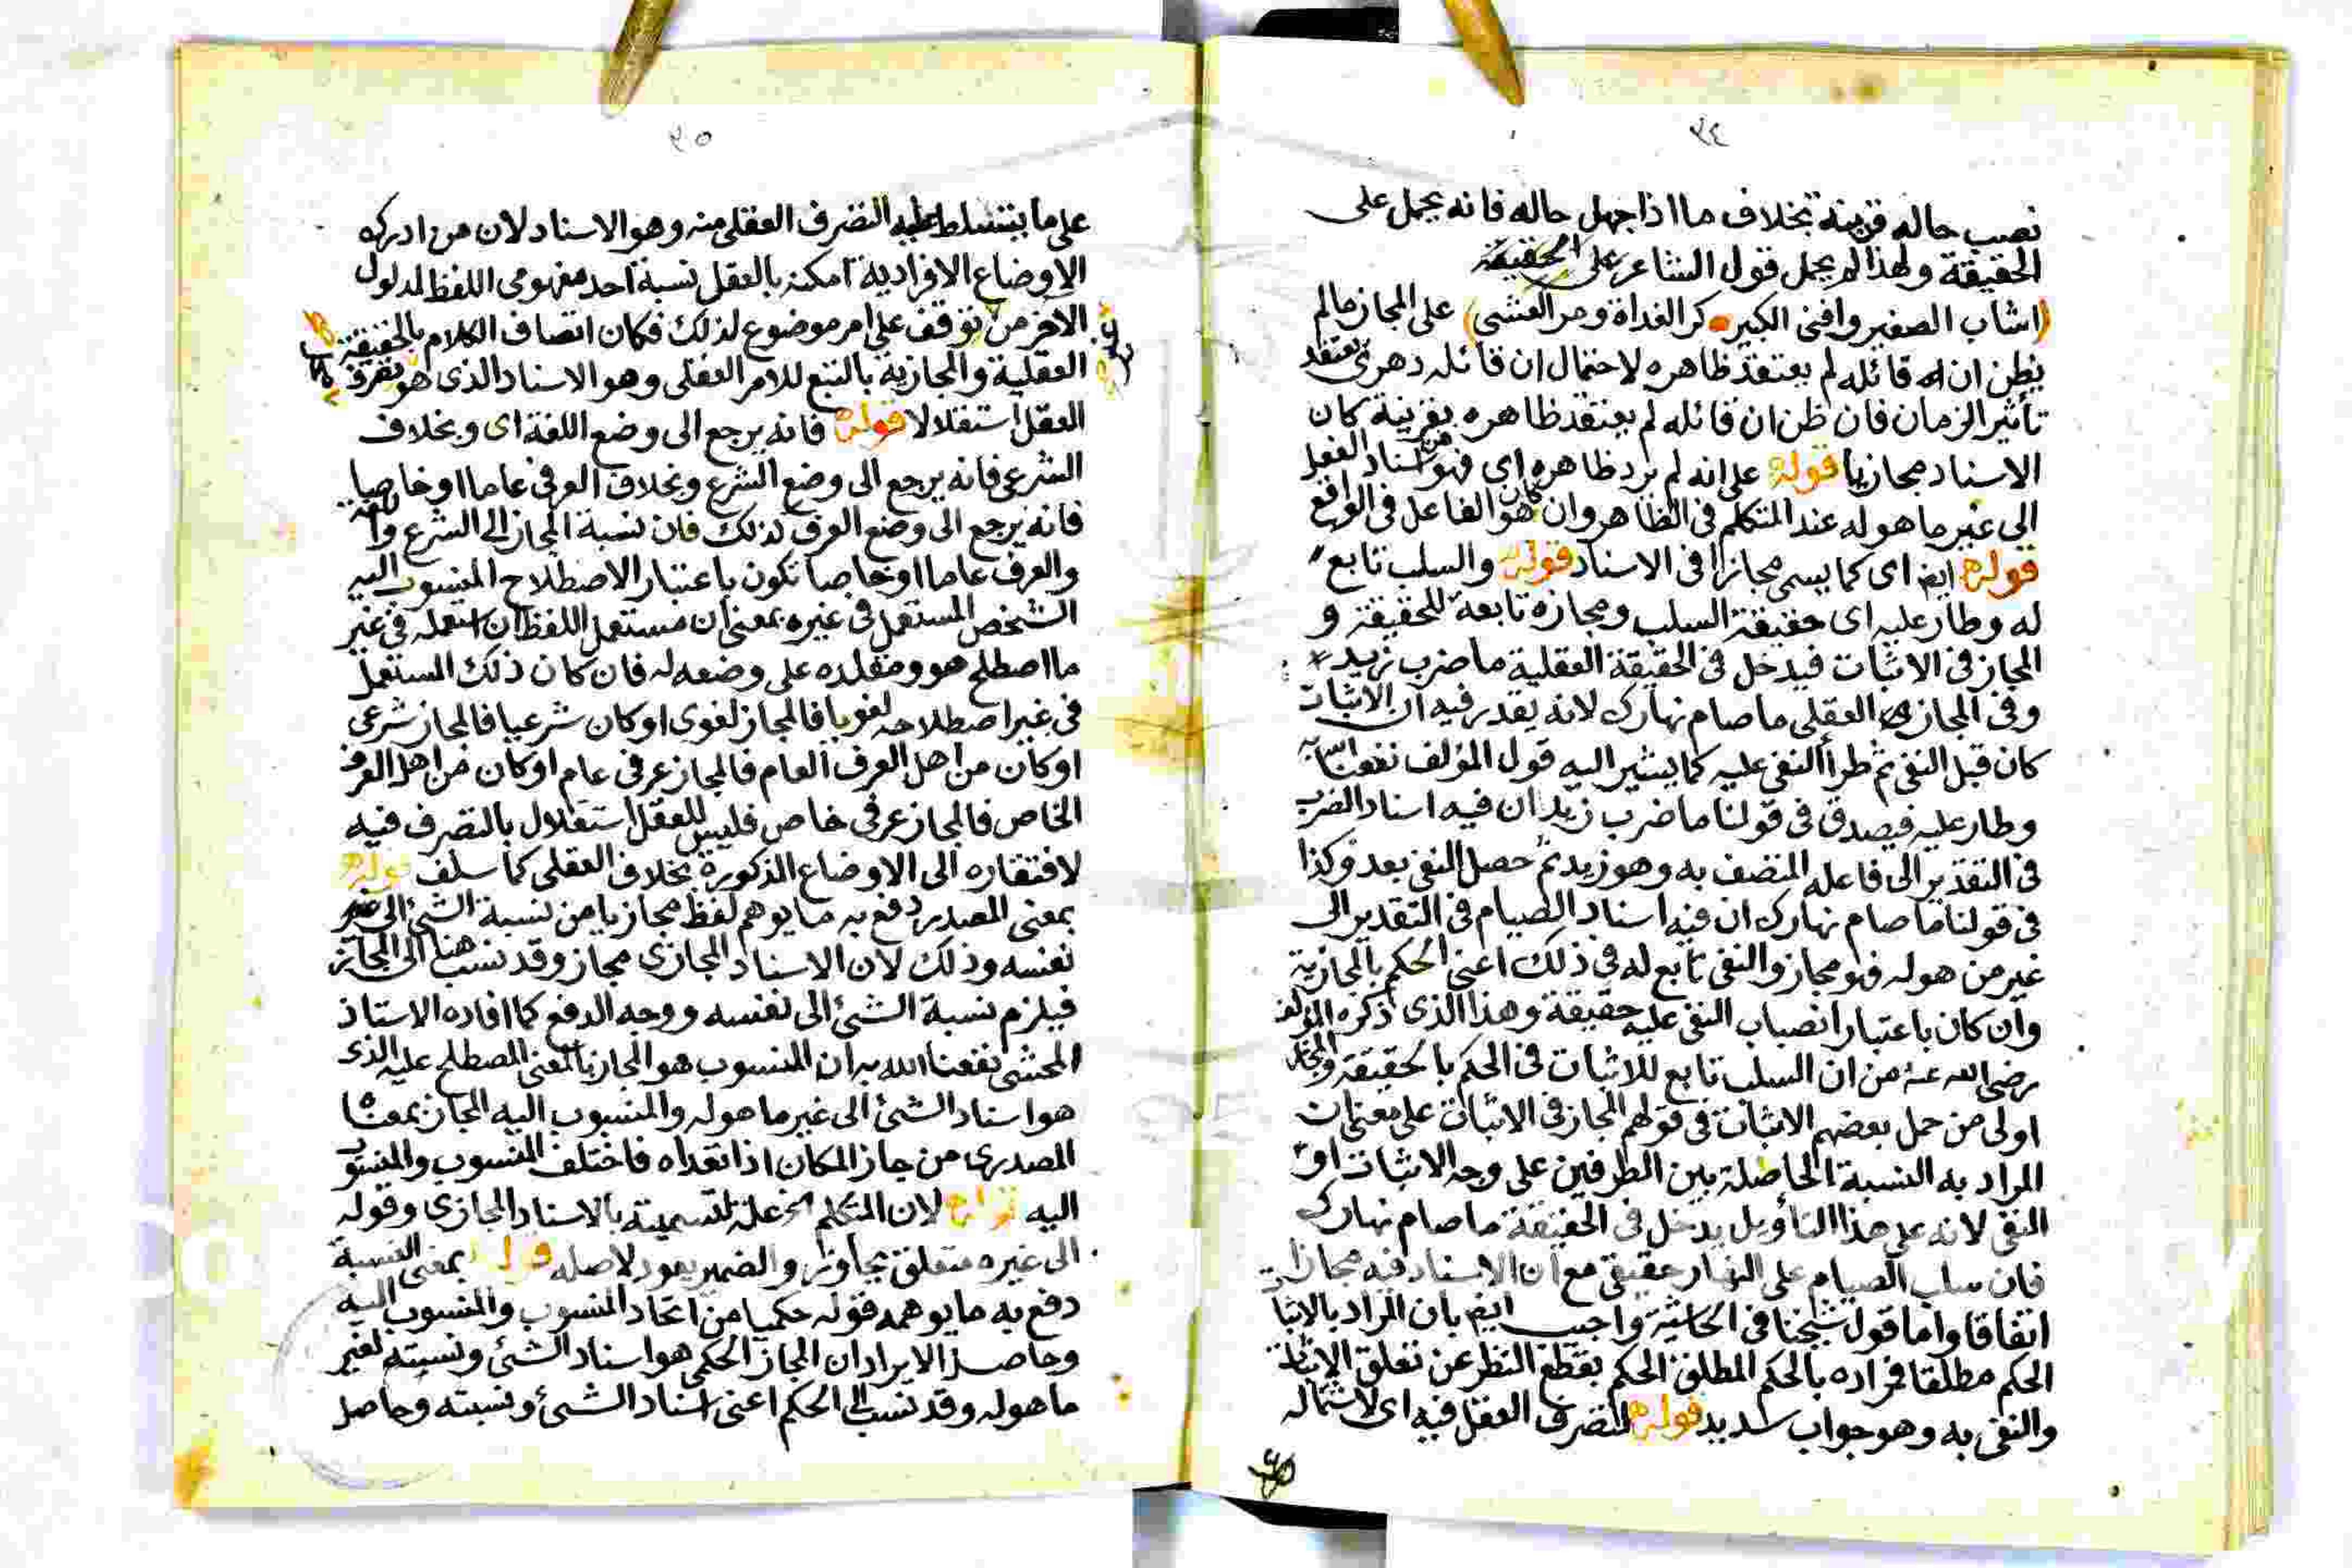 ٣٤
نصب حاله قرينة بخلاف ما اذا جهل حاله فانه يحمل على
الحقيقة ولهذا لم يحمل قول الشاعر على الحقيقة
(اشاب الصغير وافنى الكبير • كر الغداة ومر العشى) على المجاز مالم
يظن ان قائله لم يعتقد ظاهره لاحتمال ان قائله دهرى يعتقد
تأثير الزمان فان ظن ان قائله لم يعتقد ظاهره بقرينة كان
الاسناد مجازيا قوله على انه لم يرد ظاهره اى فهو اسناد الفعل
الى غير ما هو له عند المتكلم فى الظاهر وان كان هو الفاعل فى الواقع
قوله ايضا اى كما يسمى مجازا فى الاسناد قوله والسلب تابع
له وطار عليه اى حقيقة السلب ومجازه تابعة للحقيقة و
المجاز فى الاثبات فيدخل فى الحقيقة العقلية ما ضرب زيد
وفى المجاز العقلى ما صام نهارك لانه يقدر فيه ان الاثبات
كان قبل النفى ثم طرأ النفى عليه كما يشير اليه قول المؤلف نفعنا الله به
وطار عليه فيصدق فى قولنا ما ضرب زيد ان فيه اسناد الضرب
فى التقدير الى فاعله المتصف به وهو زيد ثم حصل النفى بعد وكذا
فى قولنا ما صام نهارك ان فيه اسناد الصيام فى التقدير الى
غير من هو له فهو مجاز والنفى تابع له فى ذلك اعنى الحكم بالمجازية
وان كان باعتبار انصباب النفى عليه حقيقة وهذا الذى ذكره المؤلف
رضى الله عنه من ان السلب تابع للاثبات فى الحكم بالحقيقة والمجاز
اولى من حمل بعضهم الاثبات فى قولهم المجاز فى الاثبات على معنى ان
المراد به النسبة الحاصلة بين الطرفين على وجه الاثبات او
النفى لانه على هذا التأويل يدخل فى الحقيقة ما صام نهارك
فان سلب الصيام على النهار حقيقى مع ان الاسناد فيه مجازا
اتفاقا واما قول شيخنا فى الحاشية واجيب ايضا بان المراد بالاثبات
الحكم مطلقا فمراده بالحكم المطلق الحكم بقطع النظر عن تعلق الاثبات
والنفى به وهو جواب سديد قوله لتصرف العقل فيه اى لاشتماله
٣٥
على ما يتسلط عليه التصرف العقلى منه وهو الاسناد لان من ادرك
الاوضاع الافرادية امكنه بالعقل نسبة احد مفهومى اللفظ لمدلول
الاخر من توقف على امر موضوع لذلك فكان اتصاف الكلام بالحقيقة
العقلية والمجازية بالتبع للامر العقلى وهو الاسناد الذى هو تصرف
العقل استقلالا قوله فانه يرجع الى وضع اللغة اى وبخلاف
الشرعى فانه يرجع الى وضع الشرع وبخلاف العرفى عاما او خاصا
فانه يرجع الى وضع العرف لذلك فان نسبة المجاز الى الشرع واللغة
والعرف عاما او خاصا تكون باعتبار الاصطلاح المنسوب اليه
الشخص المستعمل فى غيره بمعنى ان مستعمل اللفظ ان استعمله فى غير
ما اصطلح هو ومقلده على وضعه له فان كان ذلك المستعمل
فى غير اصطلاحه لغويا فالمجاز لغوى او كان شرعيا فالمجاز شرعى
او كان من اهل العرف العام فالمجاز عرفى عام او كان من اهل العرف
الخاص فالمجاز عرفى خاص فليس للعقل استقلال بالتصرف فيه
لافتقاره الى الاوضاع المذكورة بخلاف العقلى كما سلف قوله
بمعنى المصدر دفع به ما يوهم لفظ مجازيا من نسبة الشئ الى غير
نفسه وذلك لان الاسناد المجازى مجاز وقد نسب هنا الى المجاز
فيلزم نسبة الشئ الى نفسه ووجه الدفع كما افاده الاستاذ
المحشى نفعنا الله به ان المنسوب هو المجاز بالمعنى المصطلح عليه الذى
هو اسناد الشئ الى غير ما هو له والمنسوب اليه المجاز بمعناه
المصدرى من جاز المكان اذا تعداه فاختلف المنسوب والمنسوب
اليه قوله لان المتكلم الخ علة لتسميته بالاسناد المجازى وقوله
الى غيره متعلق بجاوز والضمير يعود لاصله قوله بمعنى النسبة
دفع به ما يوهمه قوله حكميا من اتحاد المنسوب والمنسوب اليه
وحاصل الايراد ان المجاز الحكمى هو اسناد الشئ ونسبته لغير
ما هو له وقد نسب الى الحكم اعنى اسناد الشئ ونسبته وحاصل